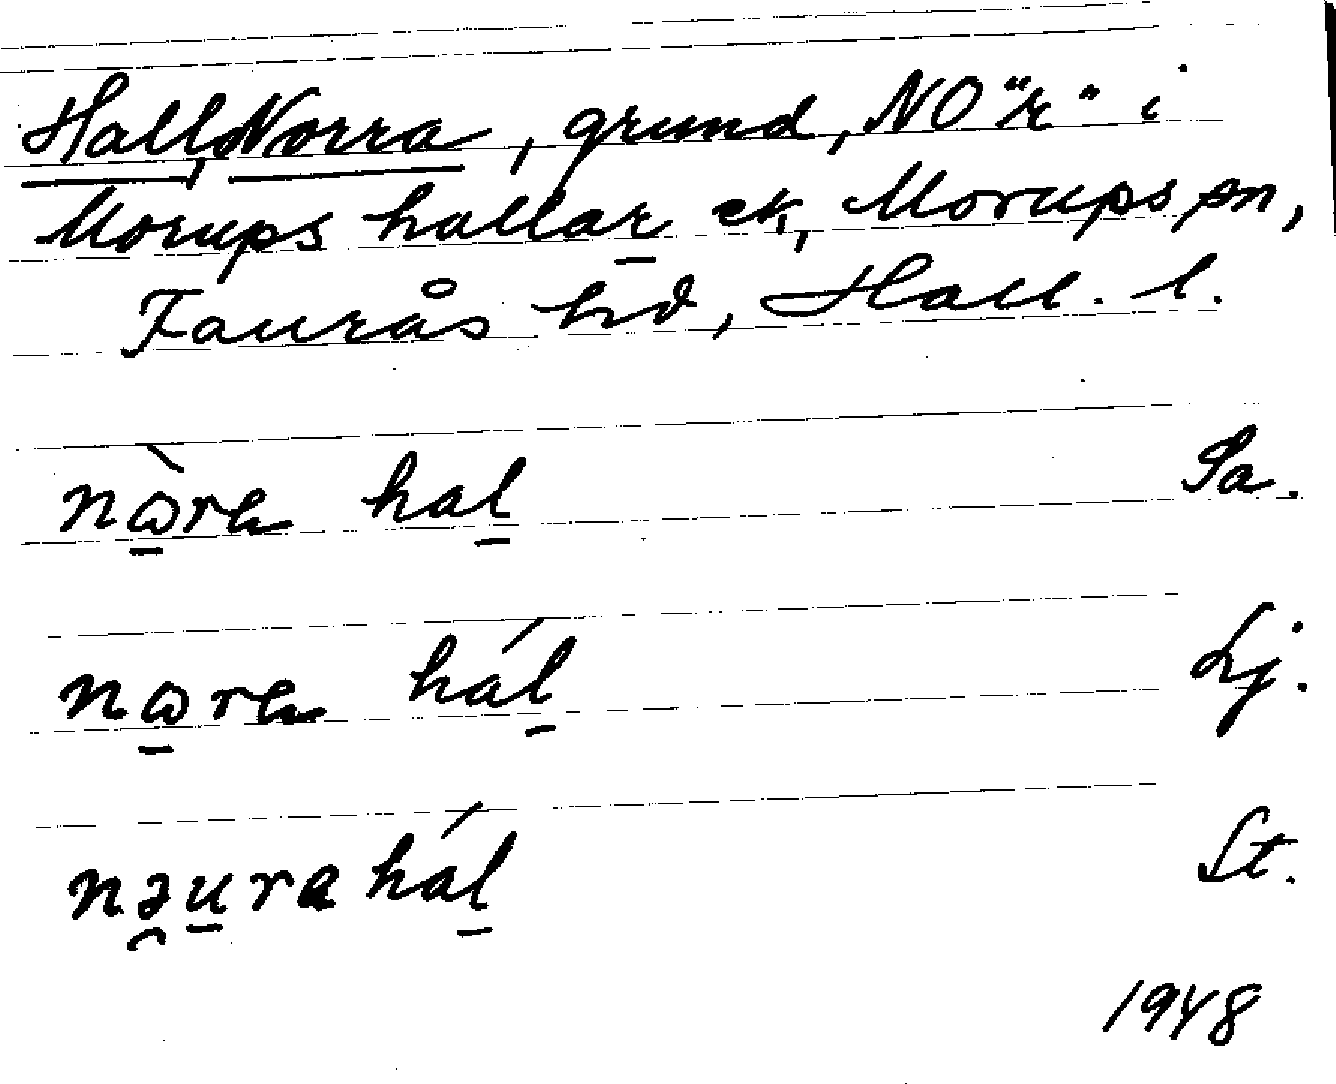 Hall, Norra, grund, NO "r" i
Morups hallar ek, Morups sn,
Faurås hd, Hall. l.
nɷ̠̀ra hal̠ Sa.
nɷ̠ra hál̠ Lj.
nə̯u̠ra hál̠ St.
1948